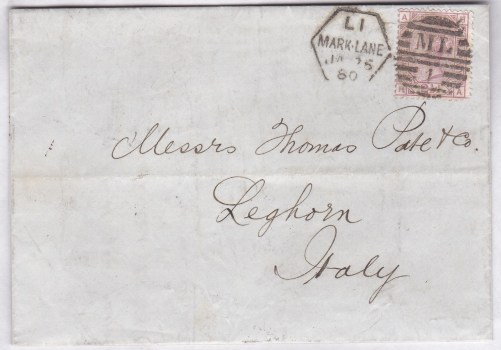 L1
MARK-LANE
JA 26
80
A
ML
1
A
Messrs Thomas Pate & Co.
Leghorn
Italy